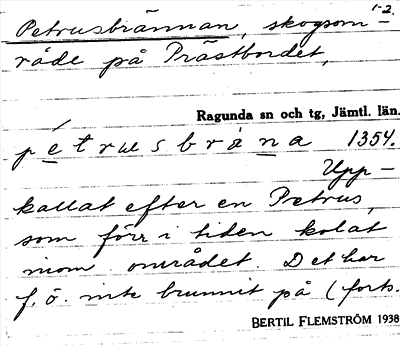 1-2.
Petrusbrännan, skogsom-
råde på Prästbordet,
Ragunda sn och tg, Jämtl. län.
pétrusbràna 1354.
Upp-
kallat efter en Petrus,
som förr i tiden kolat
inom området. Det har
f. ö. inte brunnit på (forts.
BERTIL FLEMSTRÖM 1938